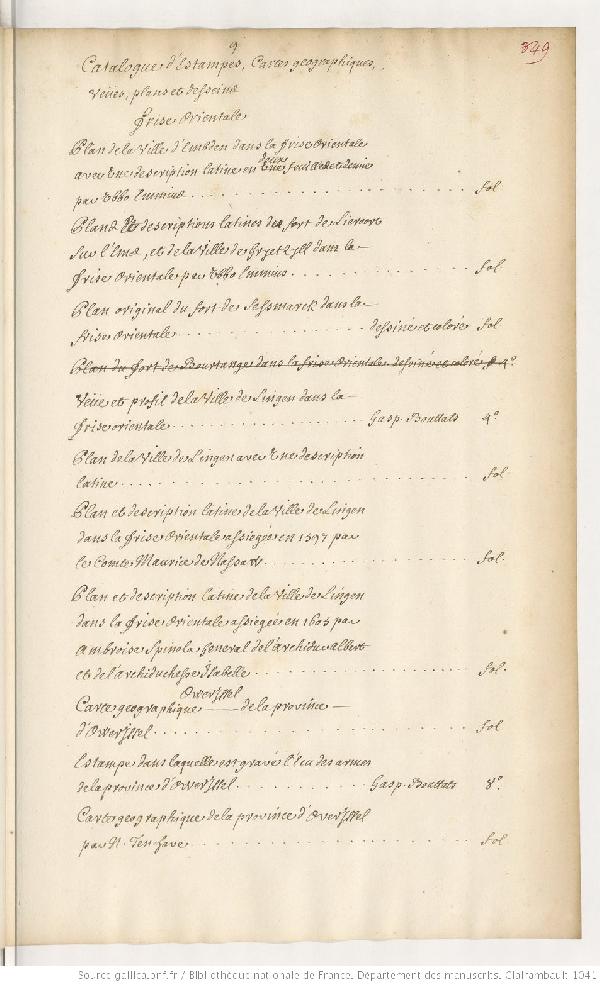 9
349
Catalogue d'Estampes, Cartes geographiques,
Veües, plans et desseins
frise Orientale
Plan de la Ville d'Embden dans la frise Orientale
avec une description latine en deux feuilles et demie
par Ubbo Emmius . . . . fol
Plans et descriptions latines du fort de Lieroort
sur l'Ems, et de la Ville de Gryetzyll dans la
frise Orientale par Ubbo Emmius . . . . fol
Plan original du fort de Sessmarck dans la
frise Orientale . . . . dessiné et coloré fol
Plan du fort de Bourtange dans la frise Orientale dessiné et coloré 4°
Veüe et profil de la Ville de Lingen dans la
frise orientale . . . . Gasp. Bouttats 4°
Plan de la Ville de Lingen avec une description
latine . . . . fol
Plan et description latine de la Ville de Lingen
dans la frise Orientale assiegée en 1597 par
le Comte Maurice de Nassaw . . . . fol.
Plan et description latine de la Ville de Lingen
dans la frise Orientale assiegée en 1605 par
Ambroise Spinola General de l'archiduc albert
et de l'archiduchesse Isabelle . . . . fol.
Owerÿssel
Carte geographique de la province
d'Owerÿssel . . . . fol
Estampe dans laquelle est gravé l'Ecu des armes
de la province d'Owerÿssel . . . . Gasp. Bouttats 8°.
Carte geographique de la province d'Overÿssel
par N. Ten have . . . . fol
Source gallica.bnf.fr / Bibliothèque nationale de France. Département des manuscrits. Clairambault 1041